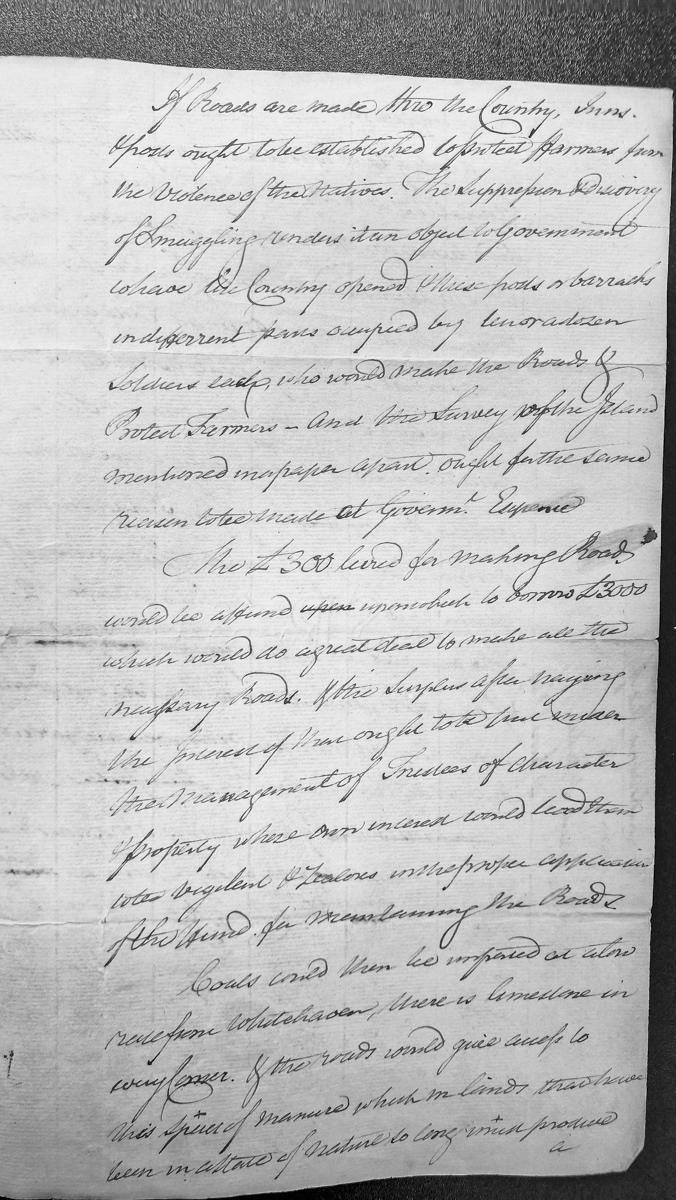 If Roads are made thro the Country, Inns.
& posts ought to be established to protect Farmers from
the Violence of the Natives. The Suppression & Discovery
of Smuggling renders it an object to Government
to have the Country opened & these posts or barracks
in different parts occupied by ten or a dozen
Soldiers each, who would make the Roads &
Protect Farmers – And the Survey of the Island
mentioned in a paper apart. ought for the same
reason to be made at Governmt. Expence
The £300 levied for making Roads
would be a fund upon upon which to borrow £3000
which would do a great deal to make all the
necessary Roads. & the Surplus after paying
the Interest of that ought to be put under
the Management of Trustees of Character
& property whose own interest would lead them
to be vigilent & Zealous in the proper application
of the Fund for maintaining the Roads
Coals could then be imported at a low
rate from Whitehaven, there is limestone in
every Corner. & the roads would give access to
this Spices of manure which in lands that have
been in a State of nature so long must produce
a